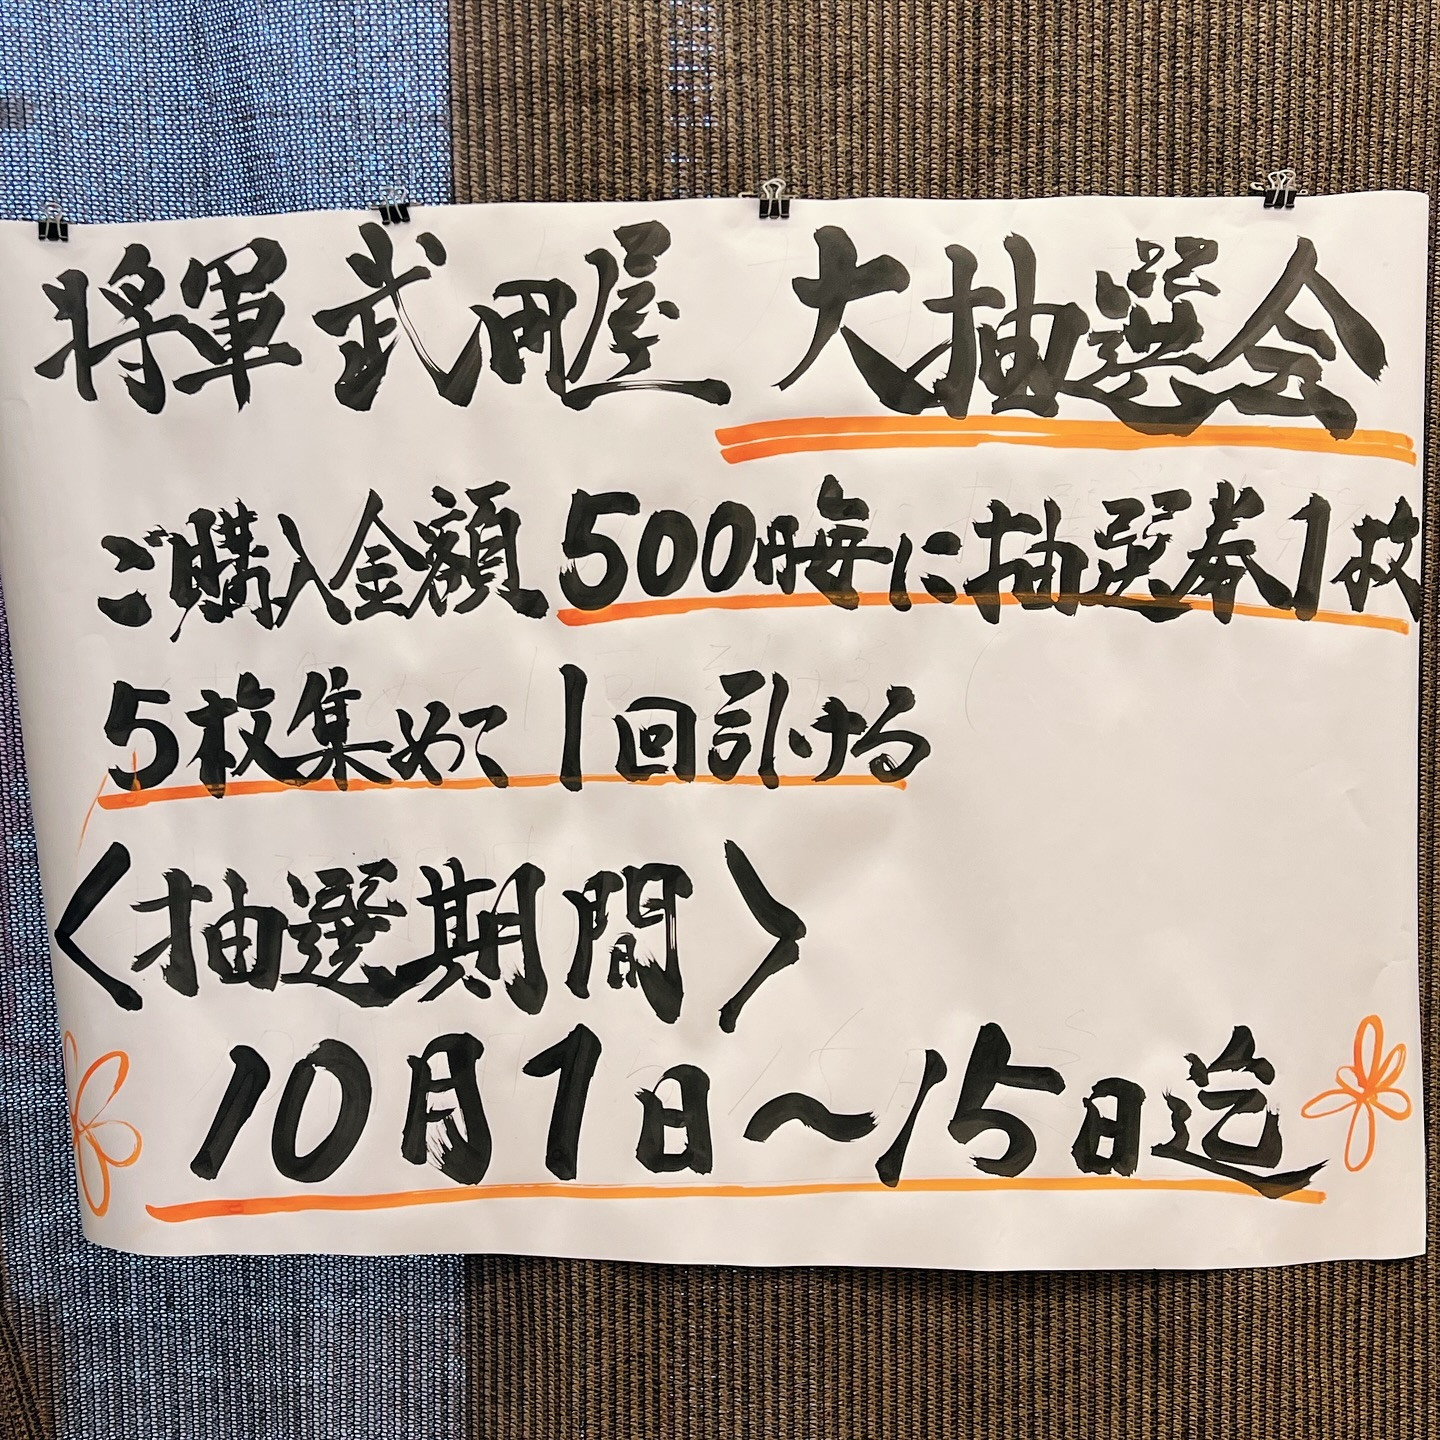 将軍 武田屋 大抽選会
ご購入金額500円毎に抽選券1枚
5枚集めて1回引ける
〈抽選期間〉
10月1日〜15日迄